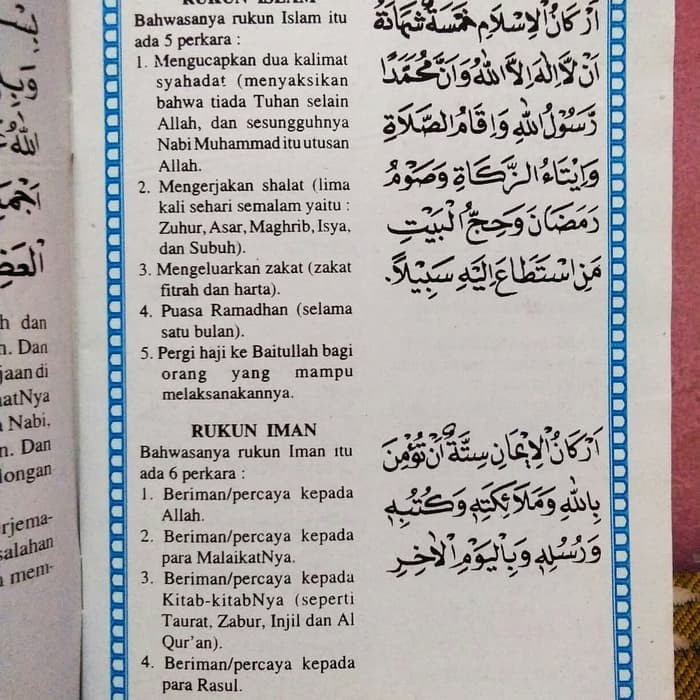 RUKUN ISLAM
Bahwasanya rukun Islam itu
ada 5 perkara :
1. Mengucapkan dua kalimat
syahadat (menyaksikan
bahwa tiada Tuhan selain
Allah, dan sesungguhnya
Nabi Muhammad itu utusan
Allah.
2. Mengerjakan shalat (lima
kali sehari semalam yaitu :
Zuhur, Asar, Maghrib, Isya,
dan Subuh).
3. Mengeluarkan zakat (zakat
fitrah dan harta).
4. Puasa Ramadhan (selama
satu bulan).
5. Pergi haji ke Baitullah bagi
orang yang mampu
melaksanakannya.
اَرْكَانُ الْاِسْلَامِ خَمْسَةٌ شَهَادَةُ
اَنْ لَّا اِلٰهَ اِلَّا اللهُ وَاَنَّ مُحَمَّدًا
رَّسُوْلُ اللهِ وَاِقَامُ الصَّلَاةِ
وَاِيْتَاءُ الزَّكَاةِ وَصَوْمُ
رَمَضَانَ وَحِجُّ الْبَيْتِ
مَنِ اسْتَطَاعَ اِلَيْهِ سَبِيْلًا.
RUKUN IMAN
Bahwasanya rukun Iman itu
ada 6 perkara :
1. Beriman/percaya kepada
Allah.
2. Beriman/percaya kepada
para MalaikatNya.
3. Beriman/percaya kepada
Kitab-kitabNya (seperti
Taurat, Zabur, Injil dan Al
Qur'an).
4. Beriman/percaya kepada
para Rasul.
اَرْكَانُ الْاِيْمَانِ سِتَّةٌ اَنْ تُؤْمِنَ
بِاللهِ وَمَلَائِكَتِهٖ وَكُتُبِهٖ
وَرُسُلِهٖ وَبِالْيَوْمِ الْاٰخِرِ